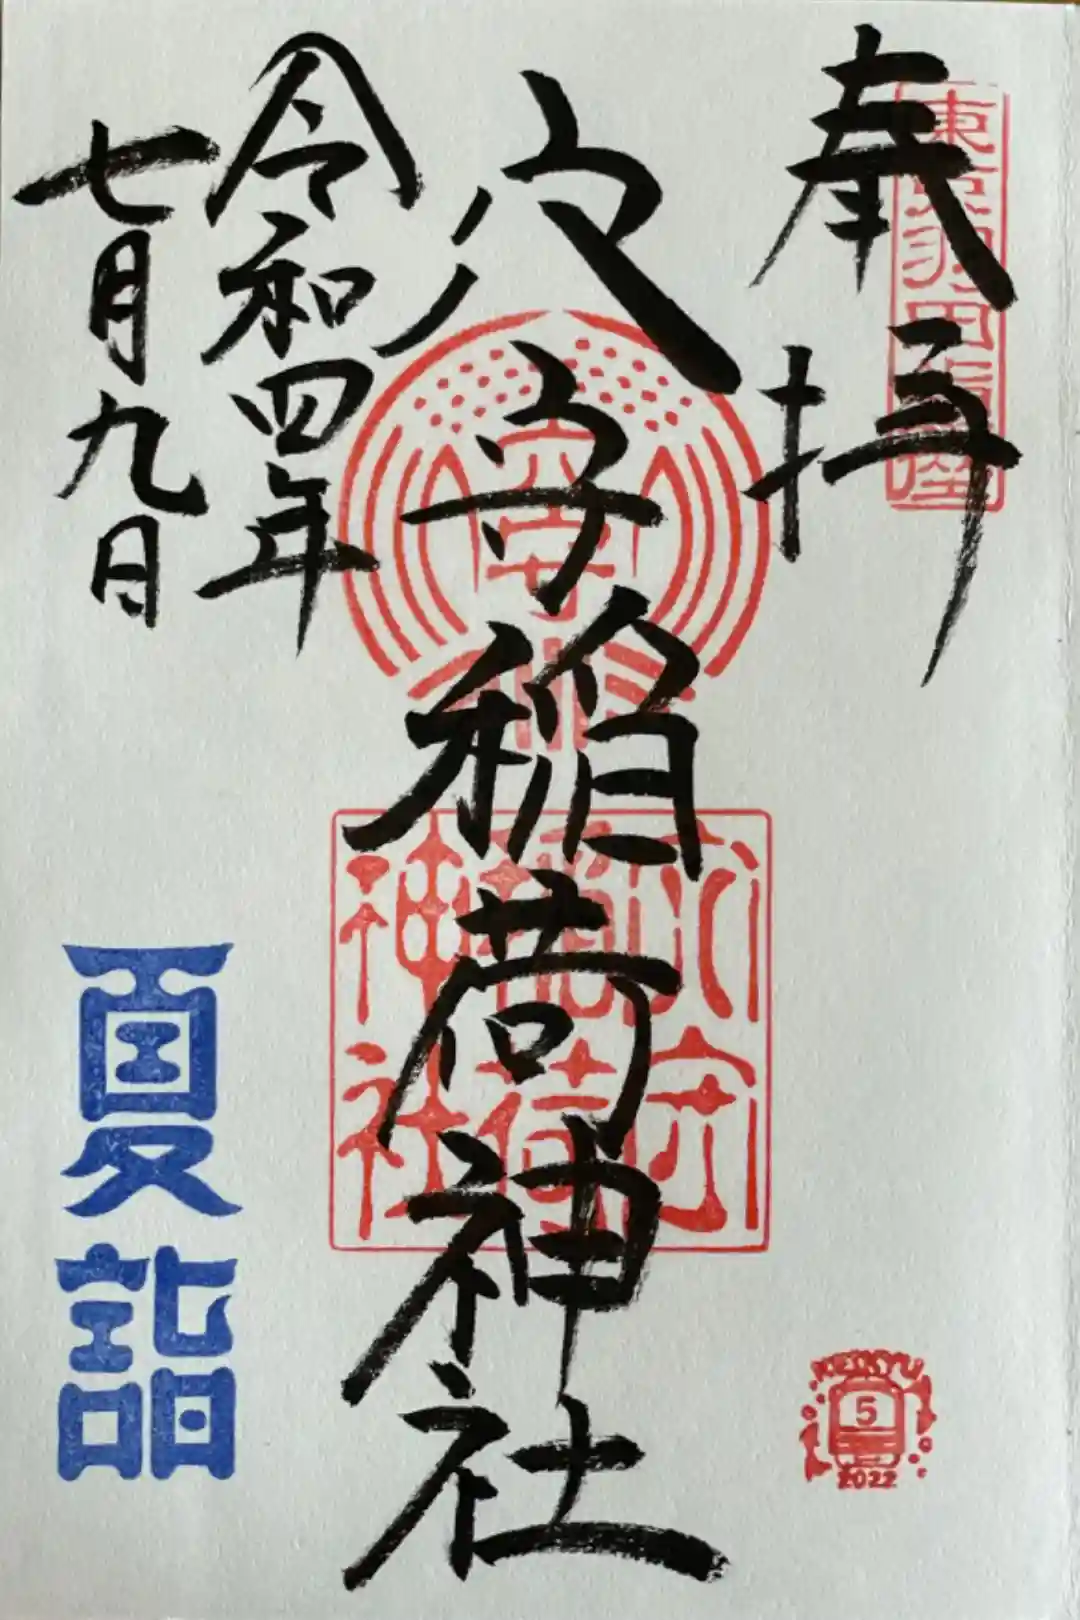 奉拝
東京羽田鎮座
穴守稲荷神社
穴守
稲荷
神社
令和四年
七月九日
夏詣
KEIKYU
5
2022